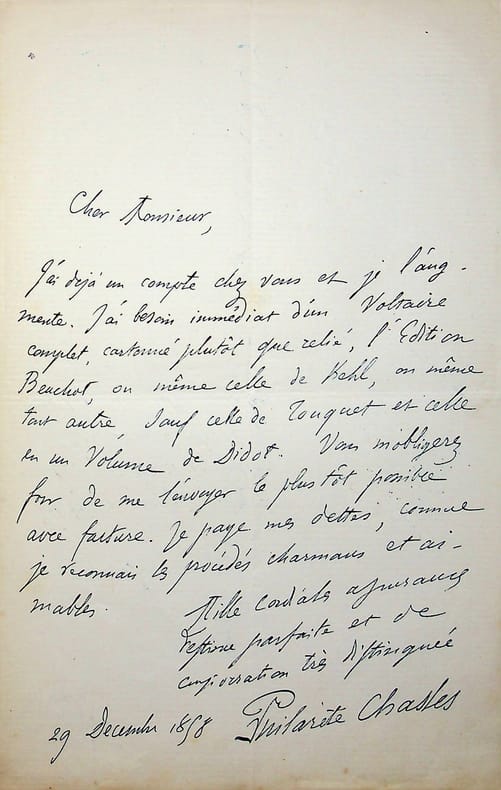 Cher Monsieur,
J'ai dejà un compte chez vous et je l'aug-
mente. J'ai besoin immédiat d'un Voltaire
complet, cartonné plutôt que relié, l'Edition
Beuchot, ou même celle de Kehl, ou même
tout autre, sauf celle de Touquet et celle
en un Volume de Didot. Vous m'obligerez
fort de me l'envoyer le plus tôt possible
avec facture. Je paye mes dettes, comme
je reconnais les procédés charmans et ai-
mables.
Mille cordiales assurances
d'estime parfaite et de
considération très distinguée
Philarète Chasles
29 Decembre 1858